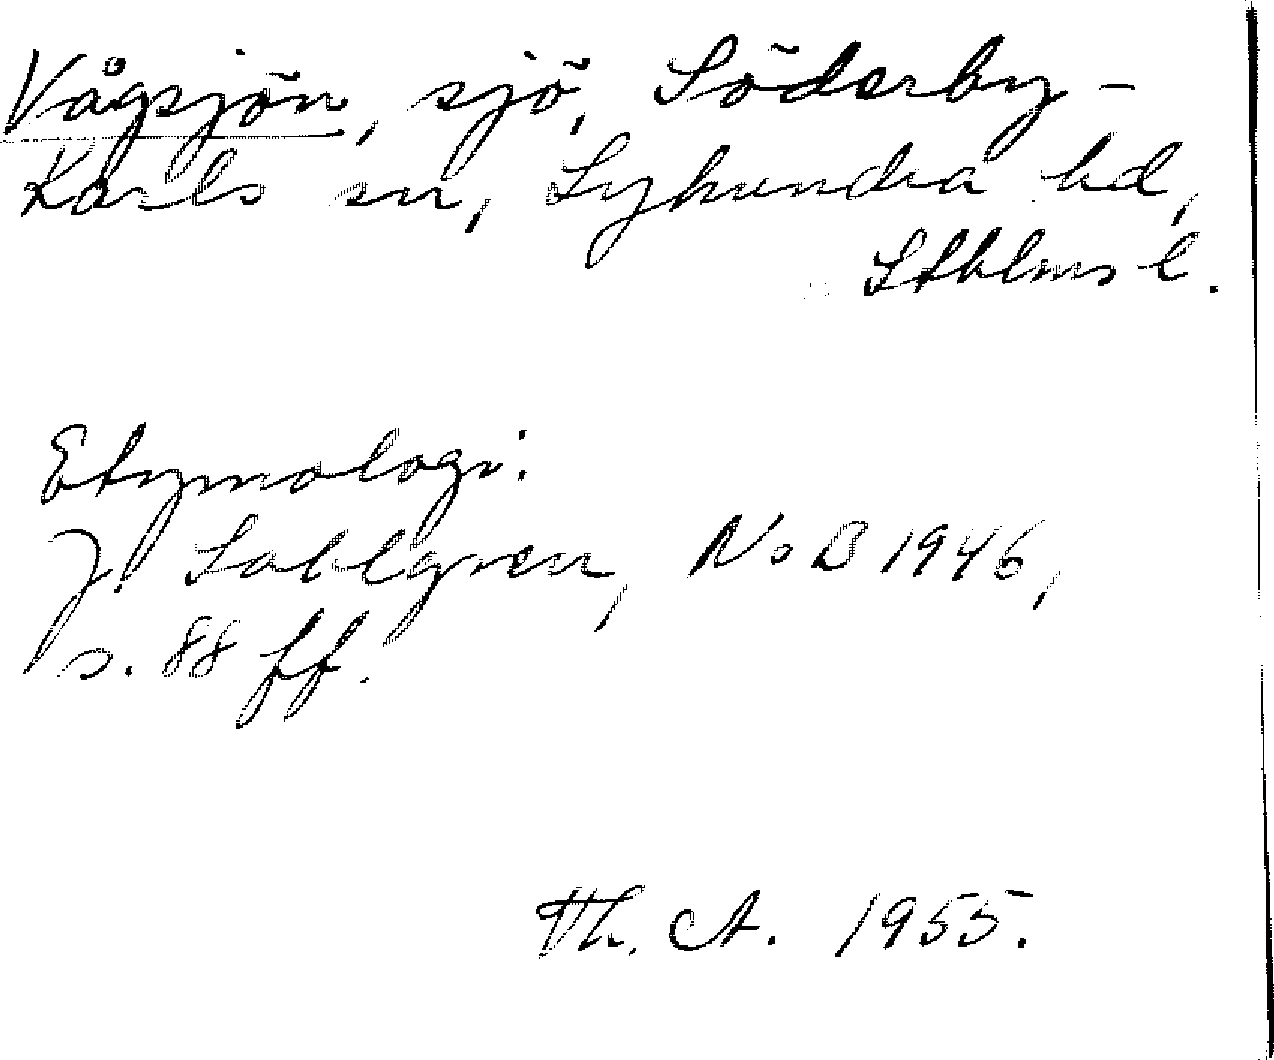 Vågsjön, sjö, Söderby-
Karls sn, Lyhundra hd,
Sthlms l.
Etymologi:
J. Sahlgren, NoB 1946,
s. 88 ff.
Th. A. 1955.